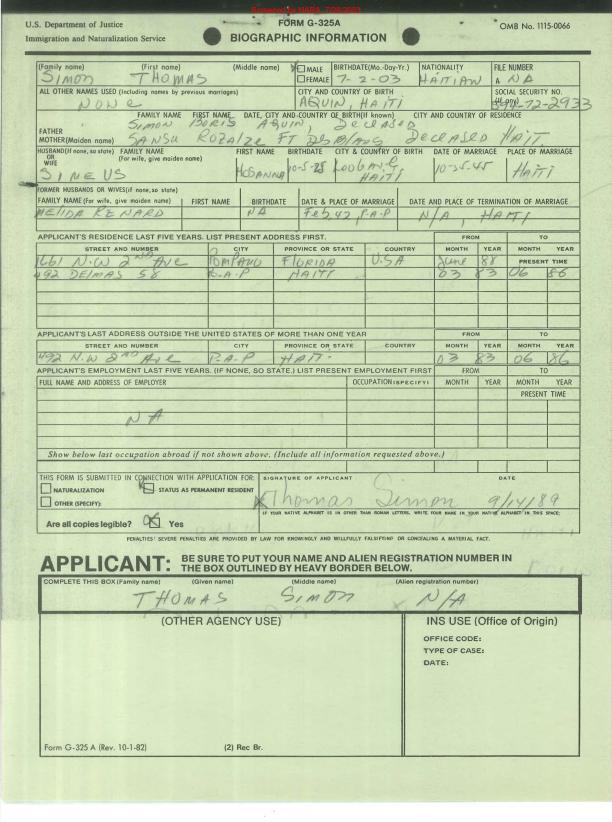 Screened by NARA, 7/26/2023
U.S. Department of Justice
FORM G-325A
OMB No. 1115-0066
Immigration and Naturalization Service
BIOGRAPHIC INFORMATION
(Family name) (First name) (Middle name) MALE BIRTHDATE(Mo.-Day-Yr.) NATIONALITY FILE NUMBER
SIMON THOMAS FEMALE 7-2-03 HAITIAN A NA
ALL OTHER NAMES USED (Including names by previous marriages) CITY AND COUNTRY OF BIRTH SOCIAL SECURITY NO.
NONE AQUIN, HAITI 72-2933
FAMILY NAME FIRST NAME DATE, CITY AND COUNTRY OF BIRTH(If known) CITY AND COUNTRY OF RESIDENCE
FATHER SIMON BORIS AQUIN, Deceased
MOTHER(Maiden name) DECEASED Haiti
HUSBAND(If none, so state) FAMILY NAME FIRST NAME BIRTHDATE CITY & COUNTRY OF BIRTH DATE OF MARRIAGE PLACE OF MARRIAGE
OR (For wife, give maiden name)
WIFE
SINEUS HAITI HAITI
FORMER HUSBANDS OR WIVES(if none,so state)
FAMILY NAME (For wife, give maiden name) FIRST NAME BIRTHDATE DATE & PLACE OF MARRIAGE DATE AND PLACE OF TERMINATION OF MARRIAGE
RENARD NA Feb 42, P.A.P N/A, HAITI
APPLICANT'S RESIDENCE LAST FIVE YEARS. LIST PRESENT ADDRESS FIRST. FROM TO
STREET AND NUMBER CITY PROVINCE OR STATE COUNTRY MONTH YEAR MONTH YEAR
1661 N.W 2ND Ave POMPANO FLORIDA U.S.A June 88 PRESENT TIME
492 DELMAS 58 P.A.P HAITI 03 83 06 86
APPLICANT'S LAST ADDRESS OUTSIDE THE UNITED STATES OF MORE THAN ONE YEAR FROM TO
STREET AND NUMBER CITY PROVINCE OR STATE COUNTRY MONTH YEAR MONTH YEAR
492 N.W 2ND Ave P.A.P HAITI 03 83 06 86
APPLICANT'S EMPLOYMENT LAST FIVE YEARS. (IF NONE, SO STATE.) LIST PRESENT EMPLOYMENT FIRST FROM TO
FULL NAME AND ADDRESS OF EMPLOYER OCCUPATION(SPECIFY) MONTH YEAR MONTH YEAR
PRESENT TIME
NA
Show below last occupation abroad if not shown above. (Include all information requested above.)
THIS FORM IS SUBMITTED IN CONNECTION WITH APPLICATION FOR: SIGNATURE OF APPLICANT DATE
NATURALIZATION STATUS AS PERMANENT RESIDENT
OTHER (SPECIFY): Thomas Simon 9/14/89
IF YOUR NATIVE ALPHABET IS IN OTHER THAN ROMAN LETTERS, WRITE YOUR NAME IN YOUR NATIVE ALPHABET IN THIS SPACE:
Are all copies legible? Yes
PENALTIES: SEVERE PENALTIES ARE PROVIDED BY LAW FOR KNOWINGLY AND WILLFULLY FALSIFYING OR CONCEALING A MATERIAL FACT.
APPLICANT: BE SURE TO PUT YOUR NAME AND ALIEN REGISTRATION NUMBER IN
THE BOX OUTLINED BY HEAVY BORDER BELOW.
COMPLETE THIS BOX (Family name) (Given name) (Middle name) (Alien registration number)
THOMAS SIMON N/A
(OTHER AGENCY USE) INS USE (Office of Origin)
OFFICE CODE:
TYPE OF CASE:
DATE:
Form G-325 A (Rev. 10-1-82) (2) Rec Br.